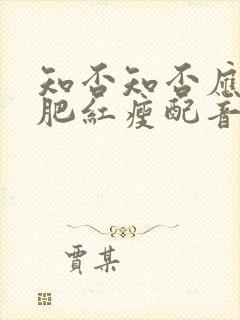 知否知否應
肥紅瘦配音
賈某